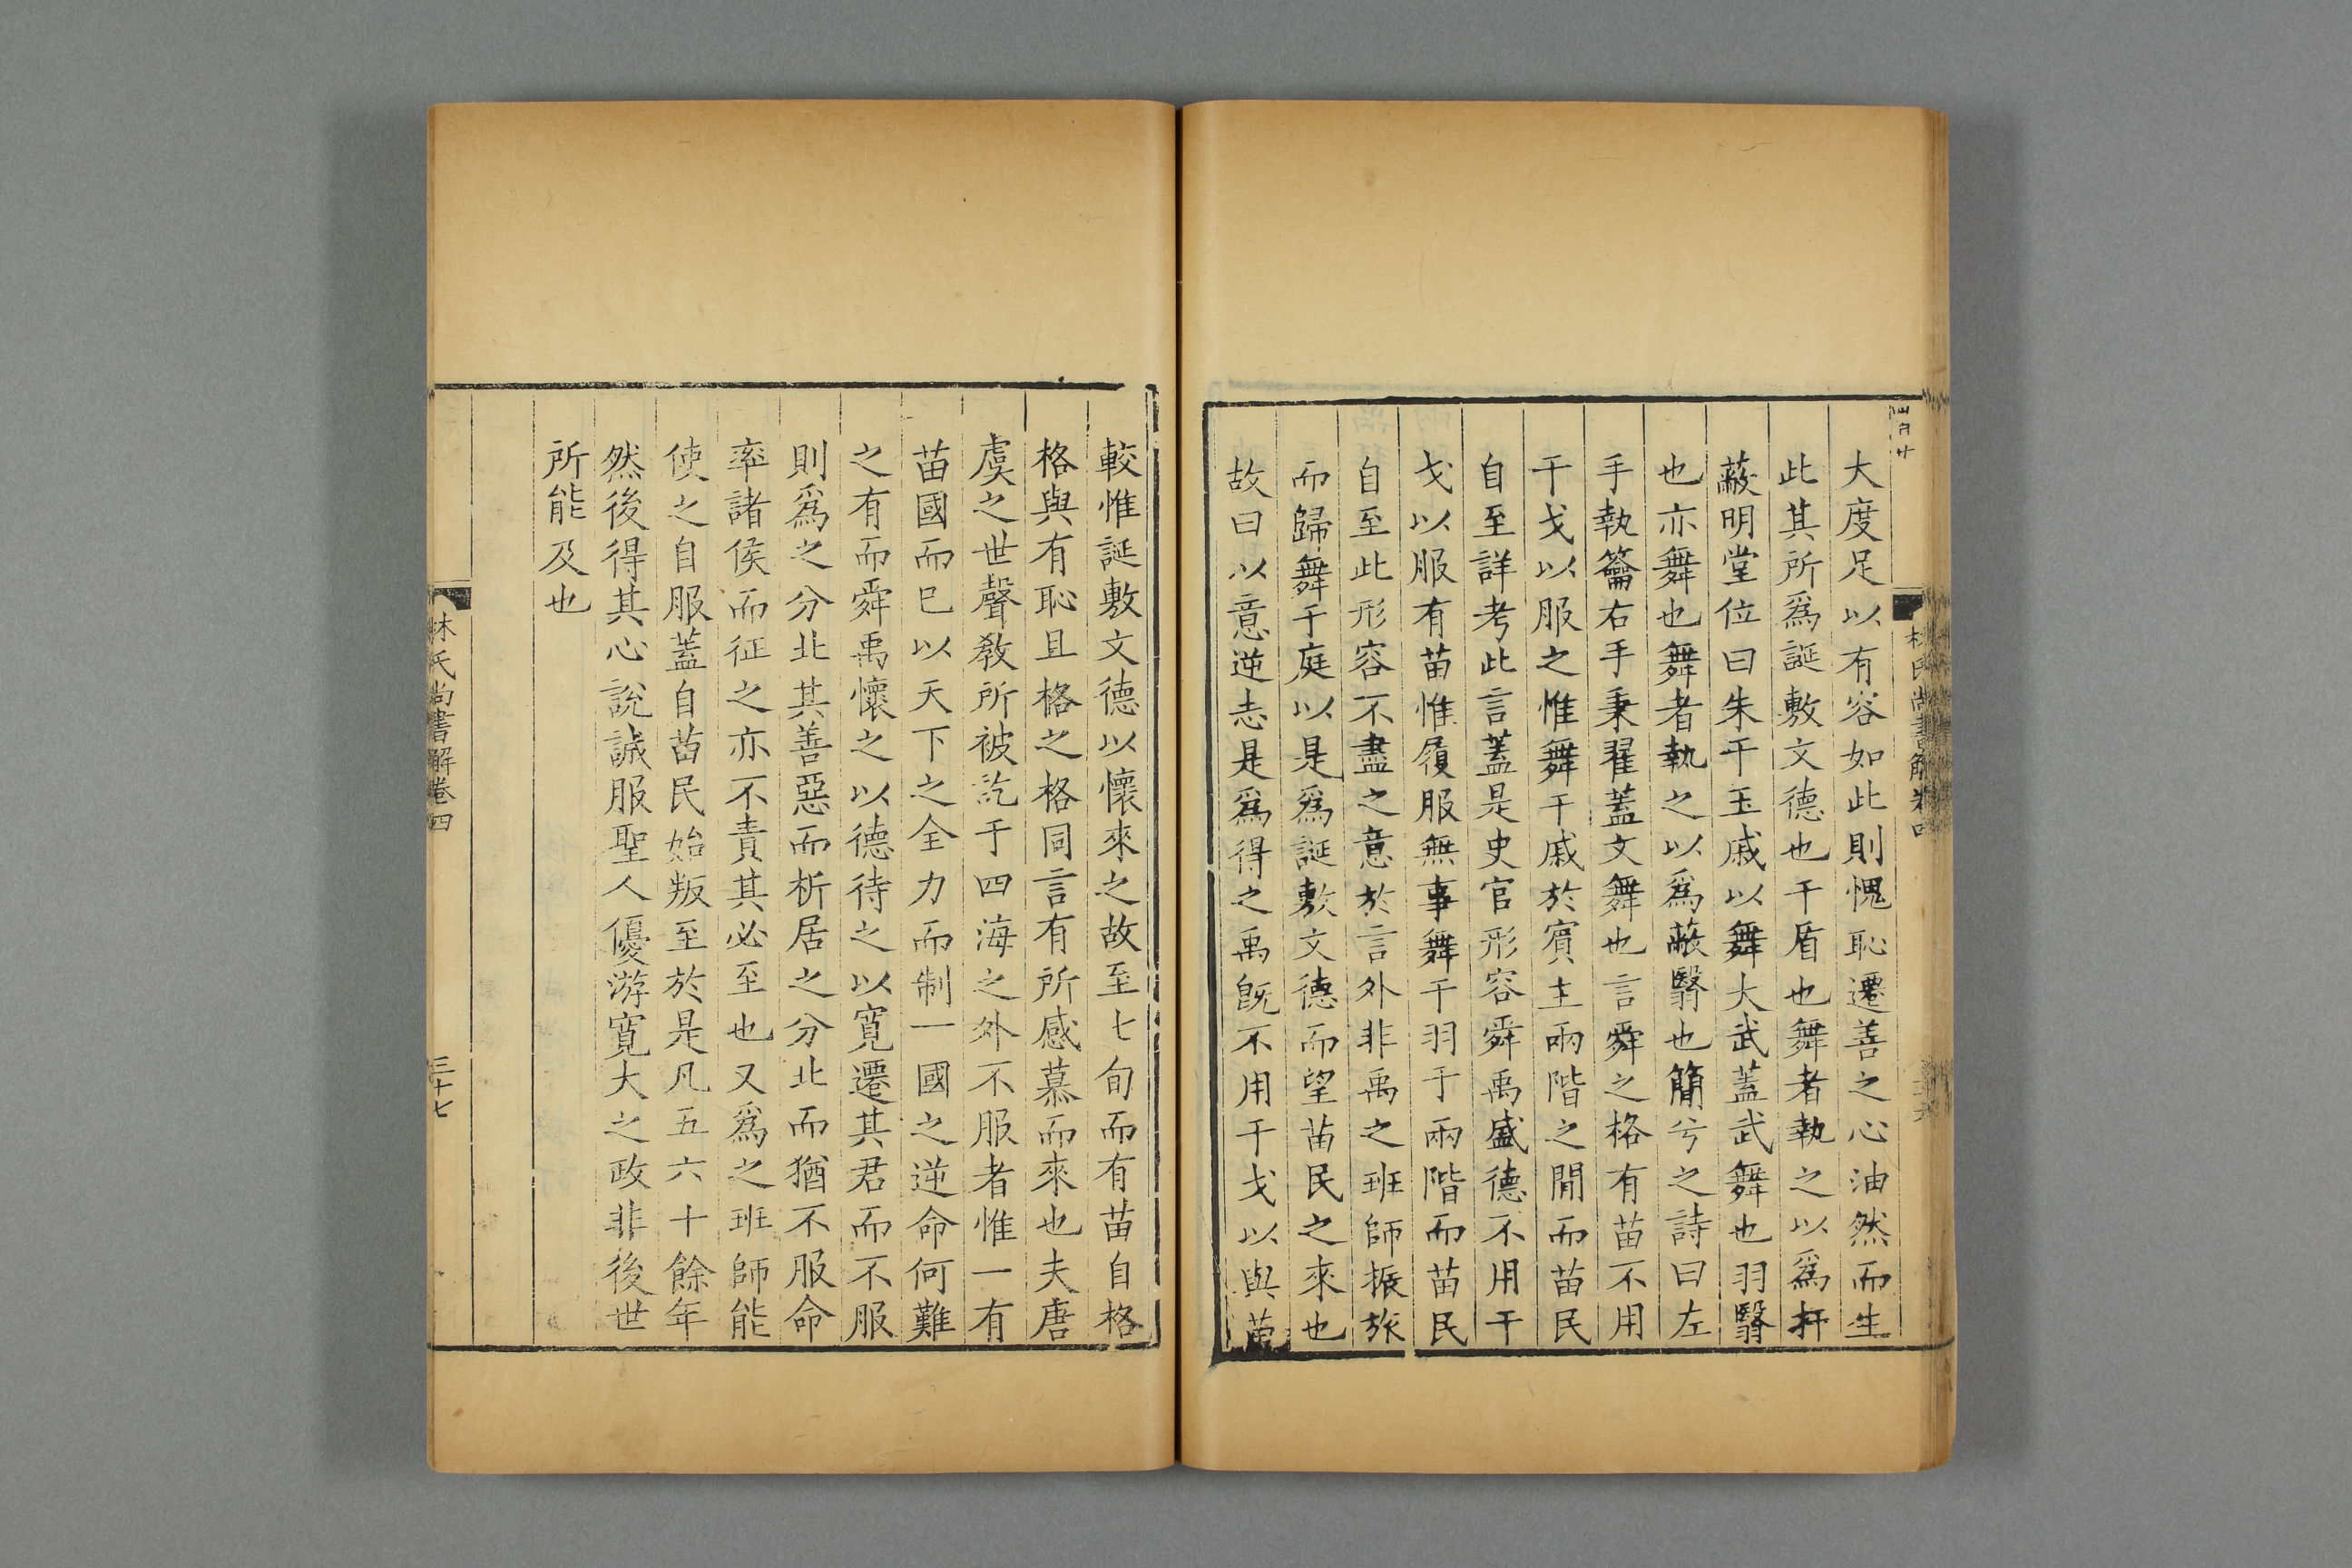 大度足以有容如此則愧恥遷善之心油然而生
此其所爲誕敷文德也干盾也舞者執之以爲扞
蔽明堂位曰朱干玉戚以舞大武蓋武舞也羽翳
也亦舞也舞者執之以爲蔽翳也簡兮之詩曰左
手執籥右手秉翟蓋文舞也言舜之格有苗不用
干戈以服之惟舞干戚於賓主兩階之閒而苗民
自至詳考此言蓋是史官形容舜禹盛德不用干
戈以服有苗惟履服無事舞干羽于兩階而苗民
自至此形容不盡之意於言外非禹之班師振旅
而歸舞干庭以是爲誕敷文德而望苗民之來也
故曰以意逆志是爲得之禹旣不用干戈以與苗
較惟誕敷文德以懷來之故至七旬而有苗自格
格與有恥且格之格同言有所感慕而來也夫唐
虞之世聲敎所被訖于四海之外不服者惟一有
苗國而已以天下之全力而制一國之逆命何難
之有而舜禹懷之以德待之以寬遷其君而不服
則爲之分北其善惡而析居之分北而猶不服命
率諸侯而征之亦不責其必至也又爲之班師能
使之自服蓋自苗民始叛至於是凡五六十餘年
然後得其心說誠服聖人優游寬大之政非後世
所能及也
林氏尚書解卷四
三十七